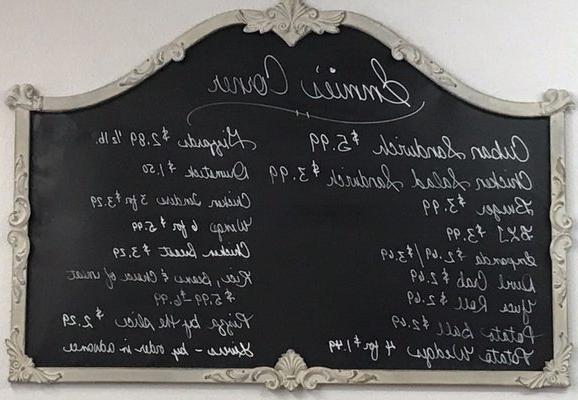 Ennie's Corner
Cuban Sandwich $5.99
Chicken Salad Sandwich $3.99
Burger $3.99
BLT $3.99
Empanada $2.69/$3.69
Devil Crab $2.69
Yuca Roll $2.69
Potato Ball $2.69
Potato Wedges 4 for $1.49
Gizzards $2.89 1/2 lb.
Drumstick $1.50
Chicken Tenders 3 for $3.29
Wings 6 for $5.99
Chicken Breast $3.29
Rice, Beans & Choice of meat
$5.99 - $6.99
Pizza by the slice $2.29
- by order in advance